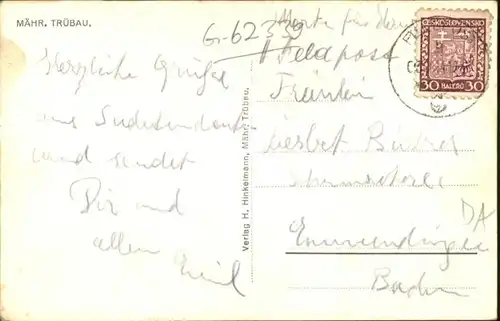 MÄHR. TRÜBAU.
G-62339
Herzliche Grüße
aus Sudetendeutschen
und sendet
Dir und
allen Emil
Verlag H. Hinkelmann, Mähr. Trübau.
Marke für
Feldpost
Fräulein
Emmendingen
Baden
DA
ČESKOSLOVENSKO
30 HALÉŘŮ 30